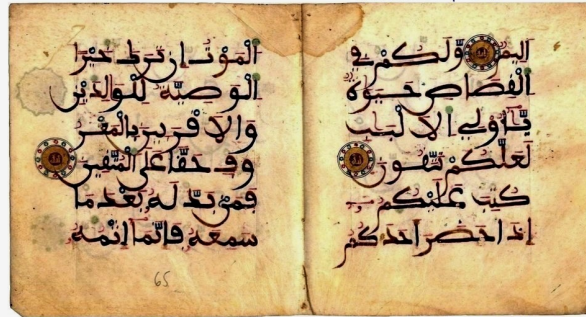 اليم وَلَكُمْ فِي
الْقِصَاصِ حَيَوٰةٌ
يَٰٓأُوْلِي الْأَلْبَٰبِ
لَعَلَّكُمْ تَتَّقُونَ
كُتِبَ عَلَيْكُمْ
إِذَا حَضَرَ أَحَدَكُمُ
الْمَوْتُ إِن تَرَكَ خَيْرًا
الْوَصِيَّةُ لِلْوَٰلِدَيْنِ
وَالْأَقْرَبِينَ بِالْمَعْرُ
وفِ حَقًّا عَلَى الْمُتَّقِينَ
فَمَنۢ بَدَّلَهُۥ بَعْدَ مَا
سَمِعَهُۥ فَإِنَّمَآ إِثْمُهُۥ
65